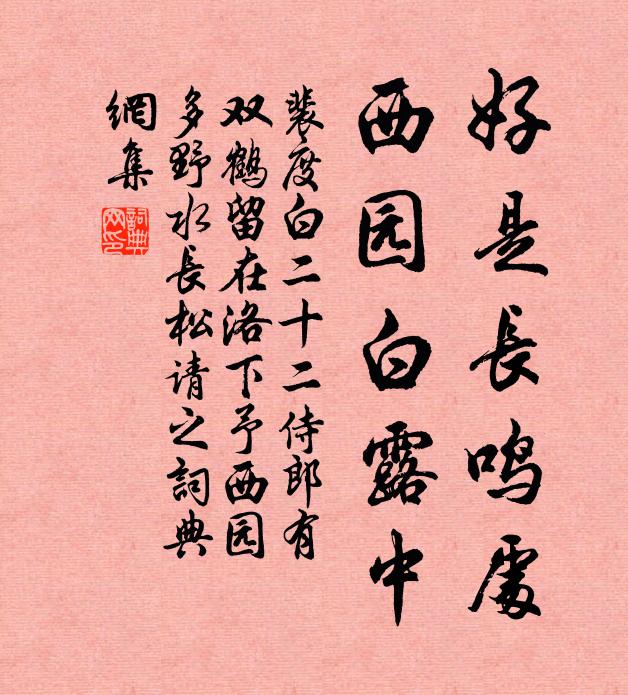 好是長鸣處
西园白露中
裴度白二十二侍郎有
双鶴留在洛下予西园
多野水長松请之詞典
網集
詞典
网印